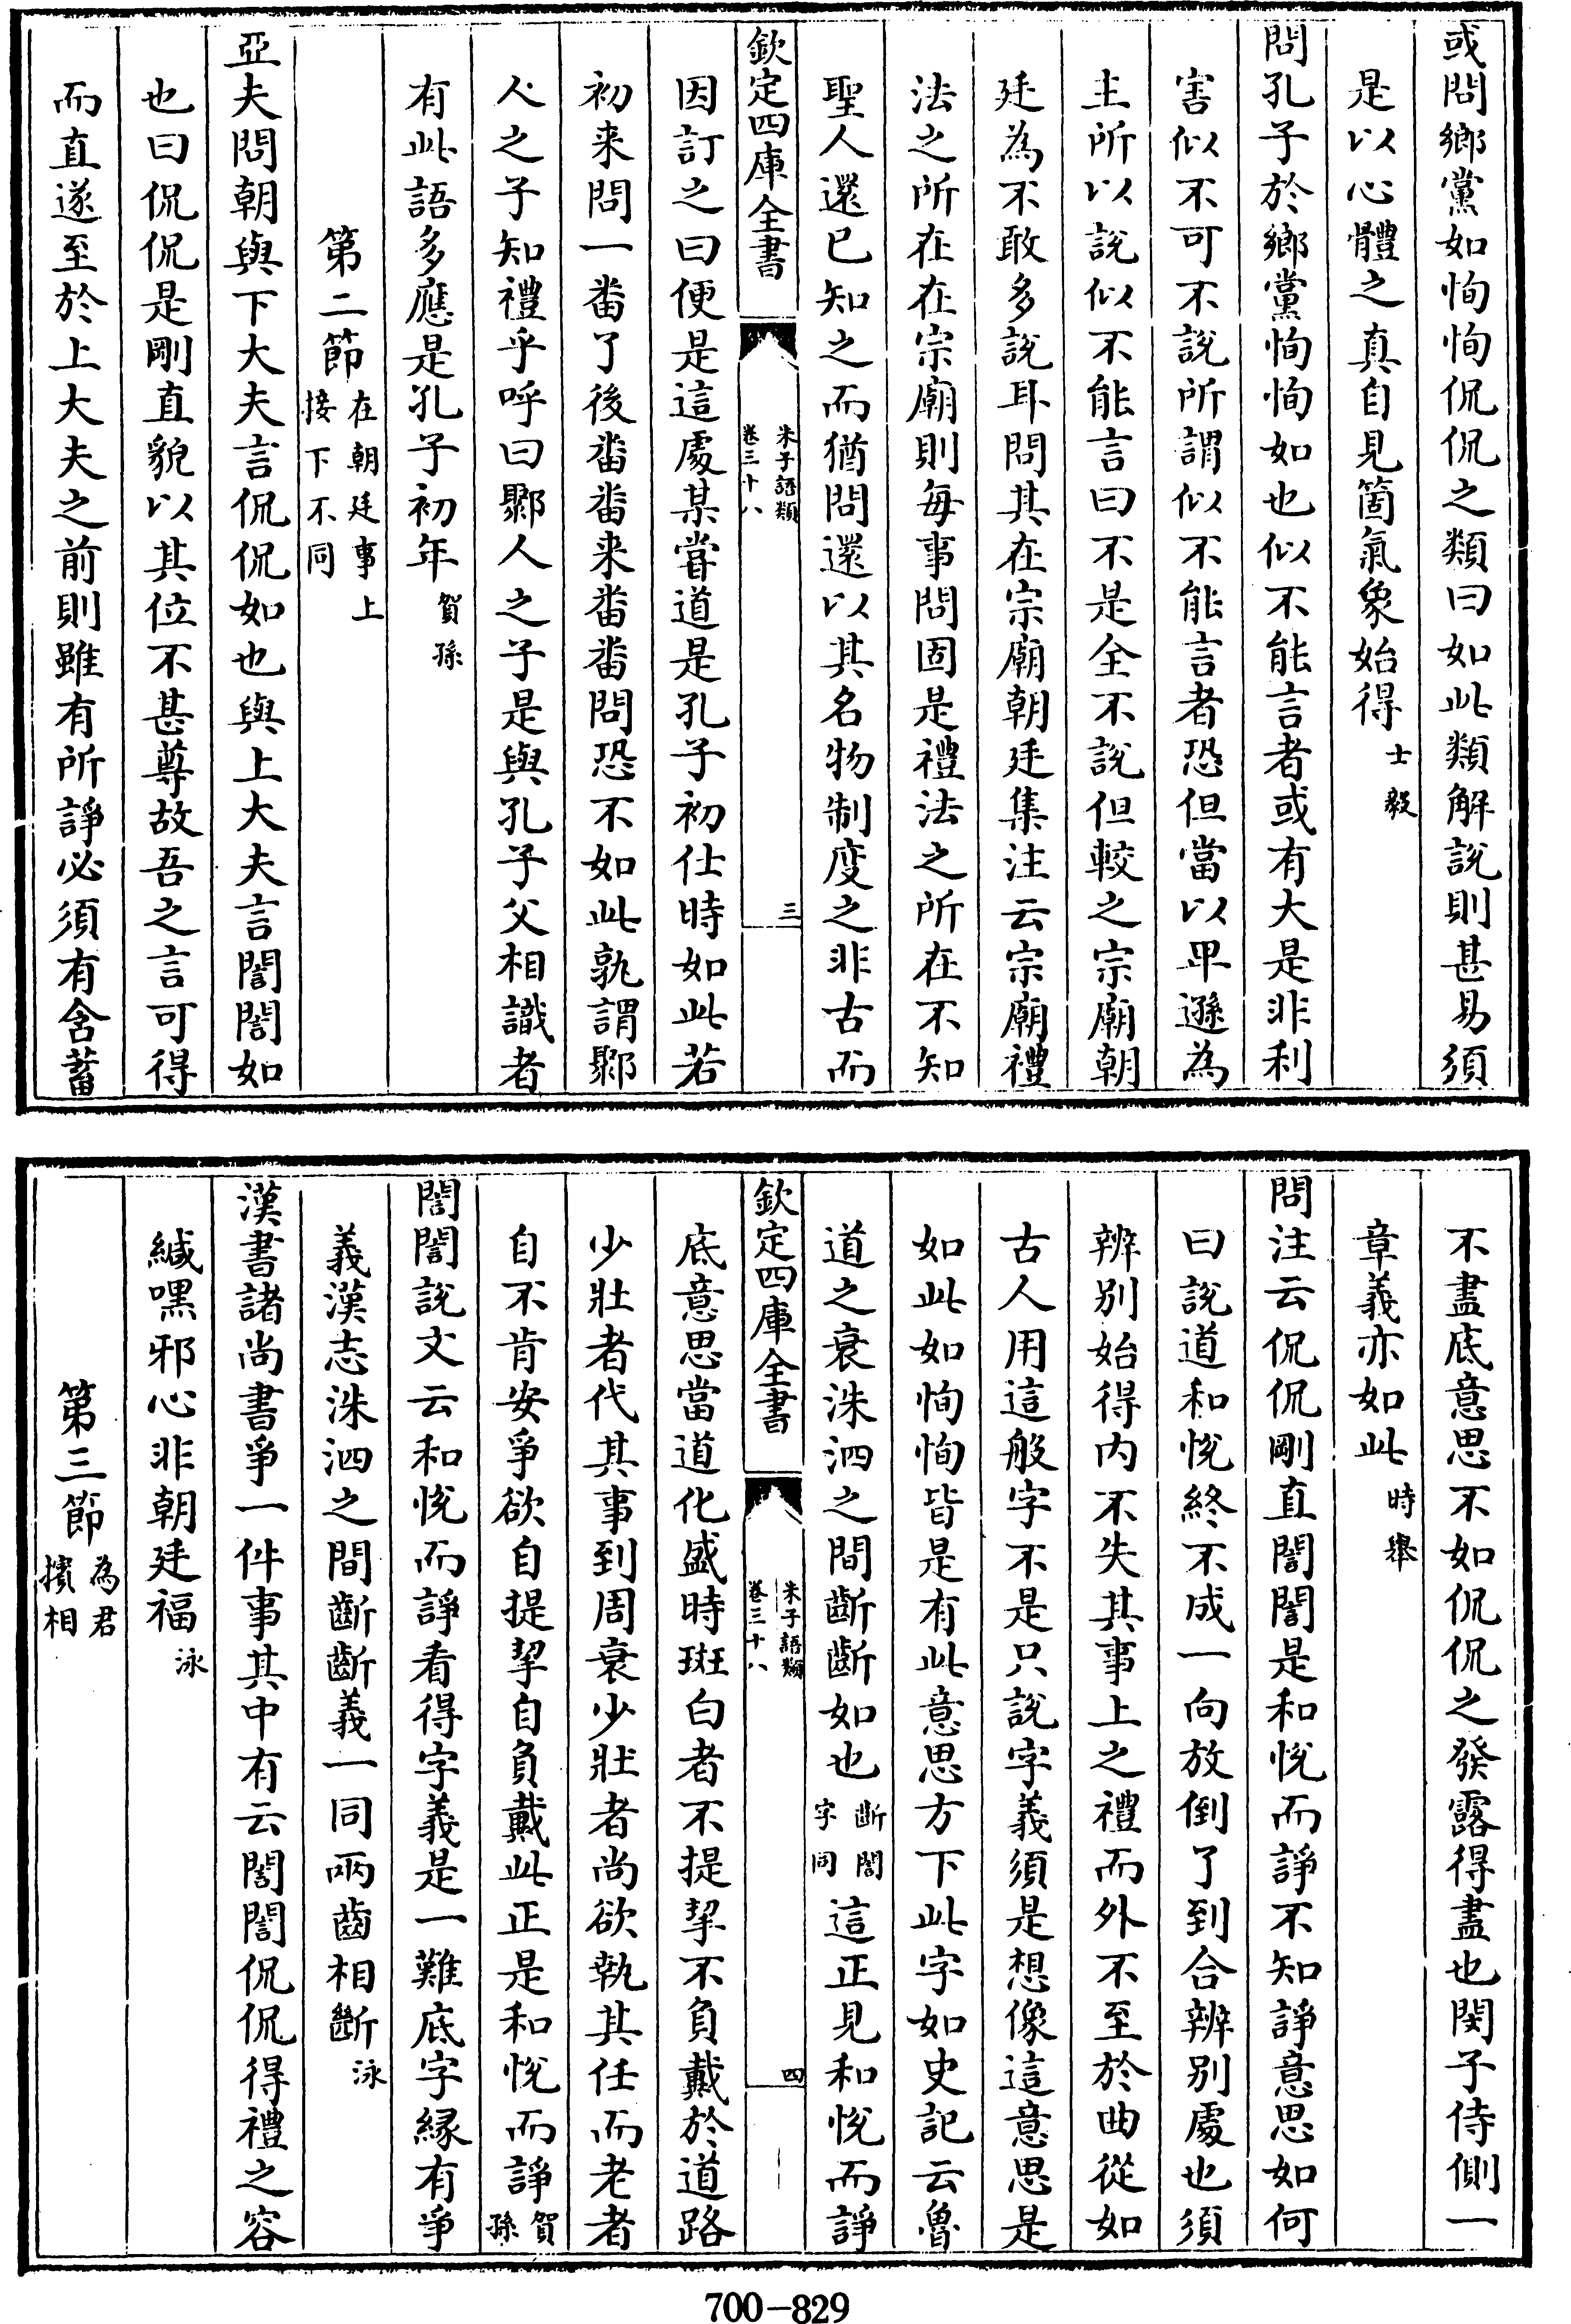 或問鄉黨如恂恂侃侃之類曰如此類解說則甚易須
是以心體之真自見箇氣象始得士毅
問孔子於鄉黨恂恂如也似不能言者或有大是非利
害似不可不說所謂似不能言者恐但當以卑遜為
主所以說似不能言曰不是全不說但較之宗廟朝
廷為不敢多說耳問其在宗廟朝廷集注云宗廟禮
法之所在在宗廟則每事問固是禮法之所在不知
聖人還已知之而猶問還以其名物制度之非古而
欽定四庫全書 朱子語類 卷三十八 三
因訂之曰便是這處某嘗道是孔子初仕時如此若
初来問一番了後番番来番番問恐不如此孰謂鄹
人之子知禮乎呼曰鄹人之子是與孔子父相識者
有此語多應是孔子初年賀孫
第二節在朝廷事上接下不同
亞夫問朝與下大夫言侃侃如也與上大夫言誾誾如
也曰侃侃是剛直貌以其位不甚尊故吾之言可得
而直遂至於上大夫之前則雖有所諍必須有含蓄
不盡底意思不如侃侃之發露得盡也閔子侍側一
章義亦如此時舉
問注云侃侃剛直誾誾是和悅而諍不知諍意思如何
曰說道和悅終不成一向放倒了到合辨別處也須
辨別始得内不失其事上之禮而外不至於曲從如
古人用這般字不是只說字義須是想像這意思是
如此如恂恂皆是有此意思方下此字如史記云魯
道之衰洙泗之間齗齗如也齗誾字同這正見和悅而諍
欽定四庫全書 朱子語類 卷三十八 四
底意思當道化盛時斑白者不提挈不負戴於道路
少壯者代其事到周衰少壯者尚欲執其任而老者
自不肯安爭欲自提挈自負戴此正是和悅而諍賀孫
誾誾說文云和悅而諍看得字義是一難底字縁有爭
義漢志洙泗之間齗齗義一同兩齒相斷泳
漢書諸尚書爭一件事其中有云誾誾侃侃得禮之容
緘嘿邪心非朝廷福泳
第三節為君擯相
700-829